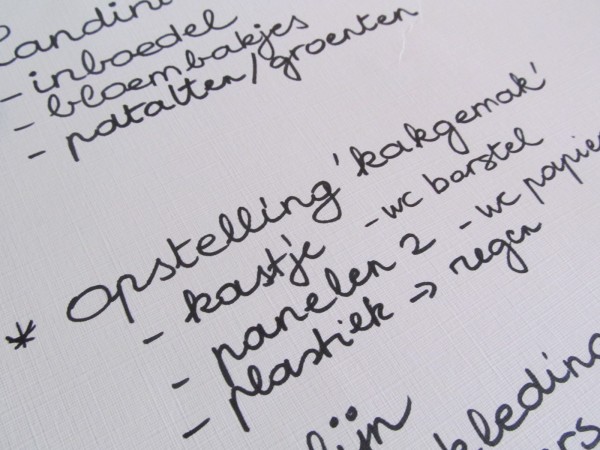 - inboedel
- bloembakjes
- patatten/groenten
* Opstelling 'kakgemak'
- kastje - wc borstel
- panelen 2 - wc papier
- plastiek → regen
kleding